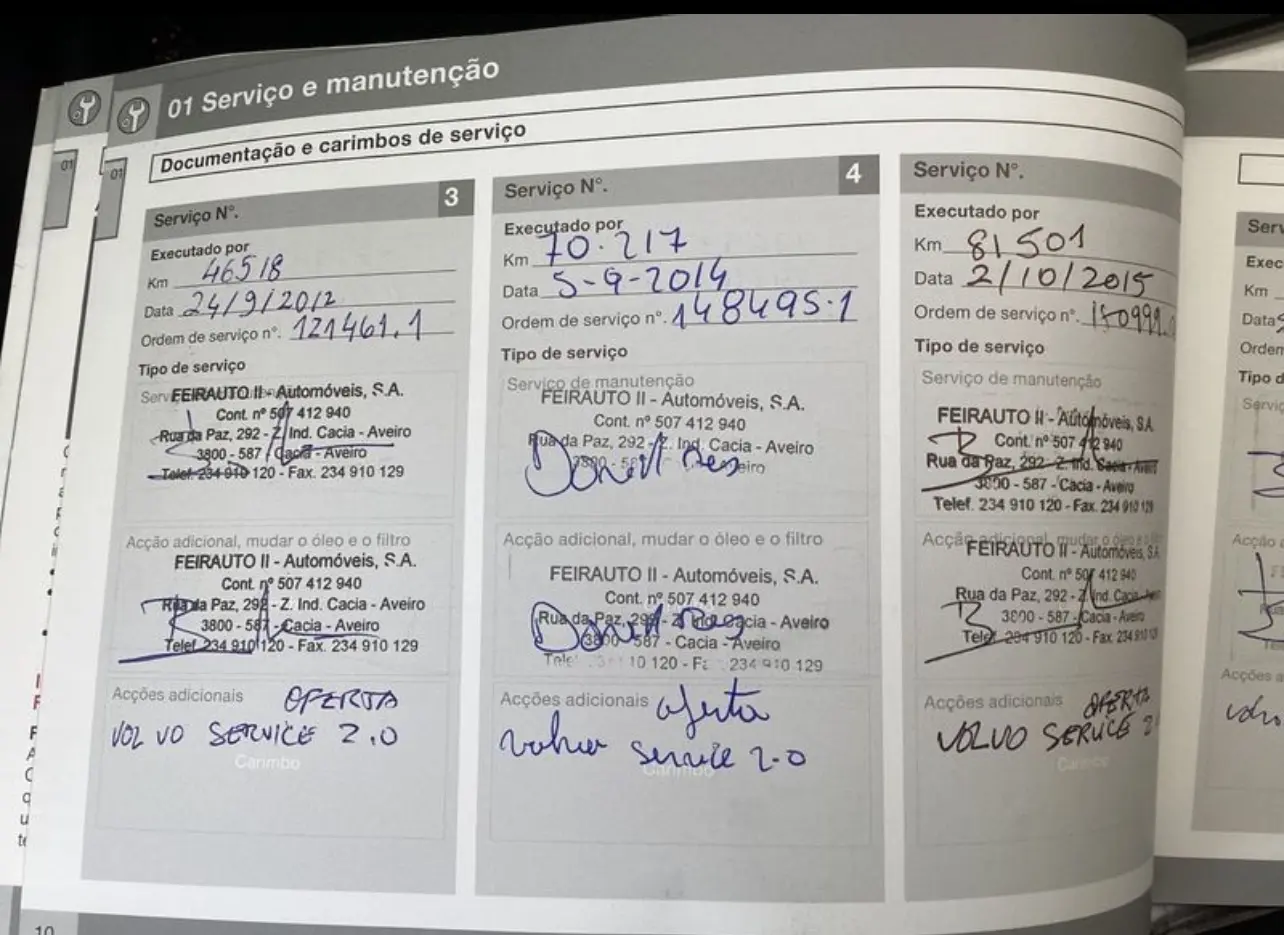 01 Serviço e manutenção
01
01
Documentação e carimbos de serviço
Serviço Nº. 3
Executado por
Km 46518
Data 24/9/2012
Ordem de serviço nº. 121461.1
Tipo de serviço
FEIRAUTO II - Automóveis, S.A.
Cont. nº 507 412 940
Rua da Paz, 292 - Z. Ind. Cacia - Aveiro
3800 - 587 - Cacia - Aveiro
Telef. 234 910 120 - Fax. 234 910 129
Acção adicional, mudar o óleo e o filtro
FEIRAUTO II - Automóveis, S.A.
Cont. nº 507 412 940
Rua da Paz, 292 - Z. Ind. Cacia - Aveiro
3800 - 587 - Cacia - Aveiro
Telef. 234 910 120 - Fax. 234 910 129
Acções adicionais OFERTA
VOLVO SERVICE 2.0
Carimbo
Serviço Nº. 4
Executado por
Km 70.217
Data 5-9-2014
Ordem de serviço nº. 148495.1
Tipo de serviço
Serviço de manutenção
FEIRAUTO II - Automóveis, S.A.
Cont. nº 507 412 940
Rua da Paz, 292 - Z. Ind. Cacia - Aveiro
Acção adicional, mudar o óleo e o filtro
FEIRAUTO II - Automóveis, S.A.
Cont. nº 507 412 940
Rua da Paz, 292 - Z. Ind. Cacia - Aveiro
3800 - 587 - Cacia - Aveiro
10 120 - Fax 234 910 129
Acções adicionais oferta
volvo service 2.0
Carimbo
Serviço Nº.
Executado por
Km 81501
Data 2/10/2015
Ordem de serviço nº. 150999.
Tipo de serviço
Serviço de manutenção
FEIRAUTO II - Automóveis, S.A.
Cont. nº 507 412 940
Rua da Paz, 292 - Z. Ind. Cacia - Aveiro
3800 - 587 - Cacia - Aveiro
Telef. 234 910 120 - Fax. 234 910 129
Acção adicional, mudar o óleo e o
FEIRAUTO II - Automóveis, S.A.
Cont. nº 507 412 940
Rua da Paz, 292 - Z. Ind. Cacia -
3800 - 587 - Cacia - Aveiro
Telef. 234 910 120 - Fax. 234 910
Acções adicionais OFERTA
VOLVO SERVICE 2
Carimbo
Serv
Exec
Km
Data
Ordem
Tipo d
Serviç
Acção a
Acções a
10